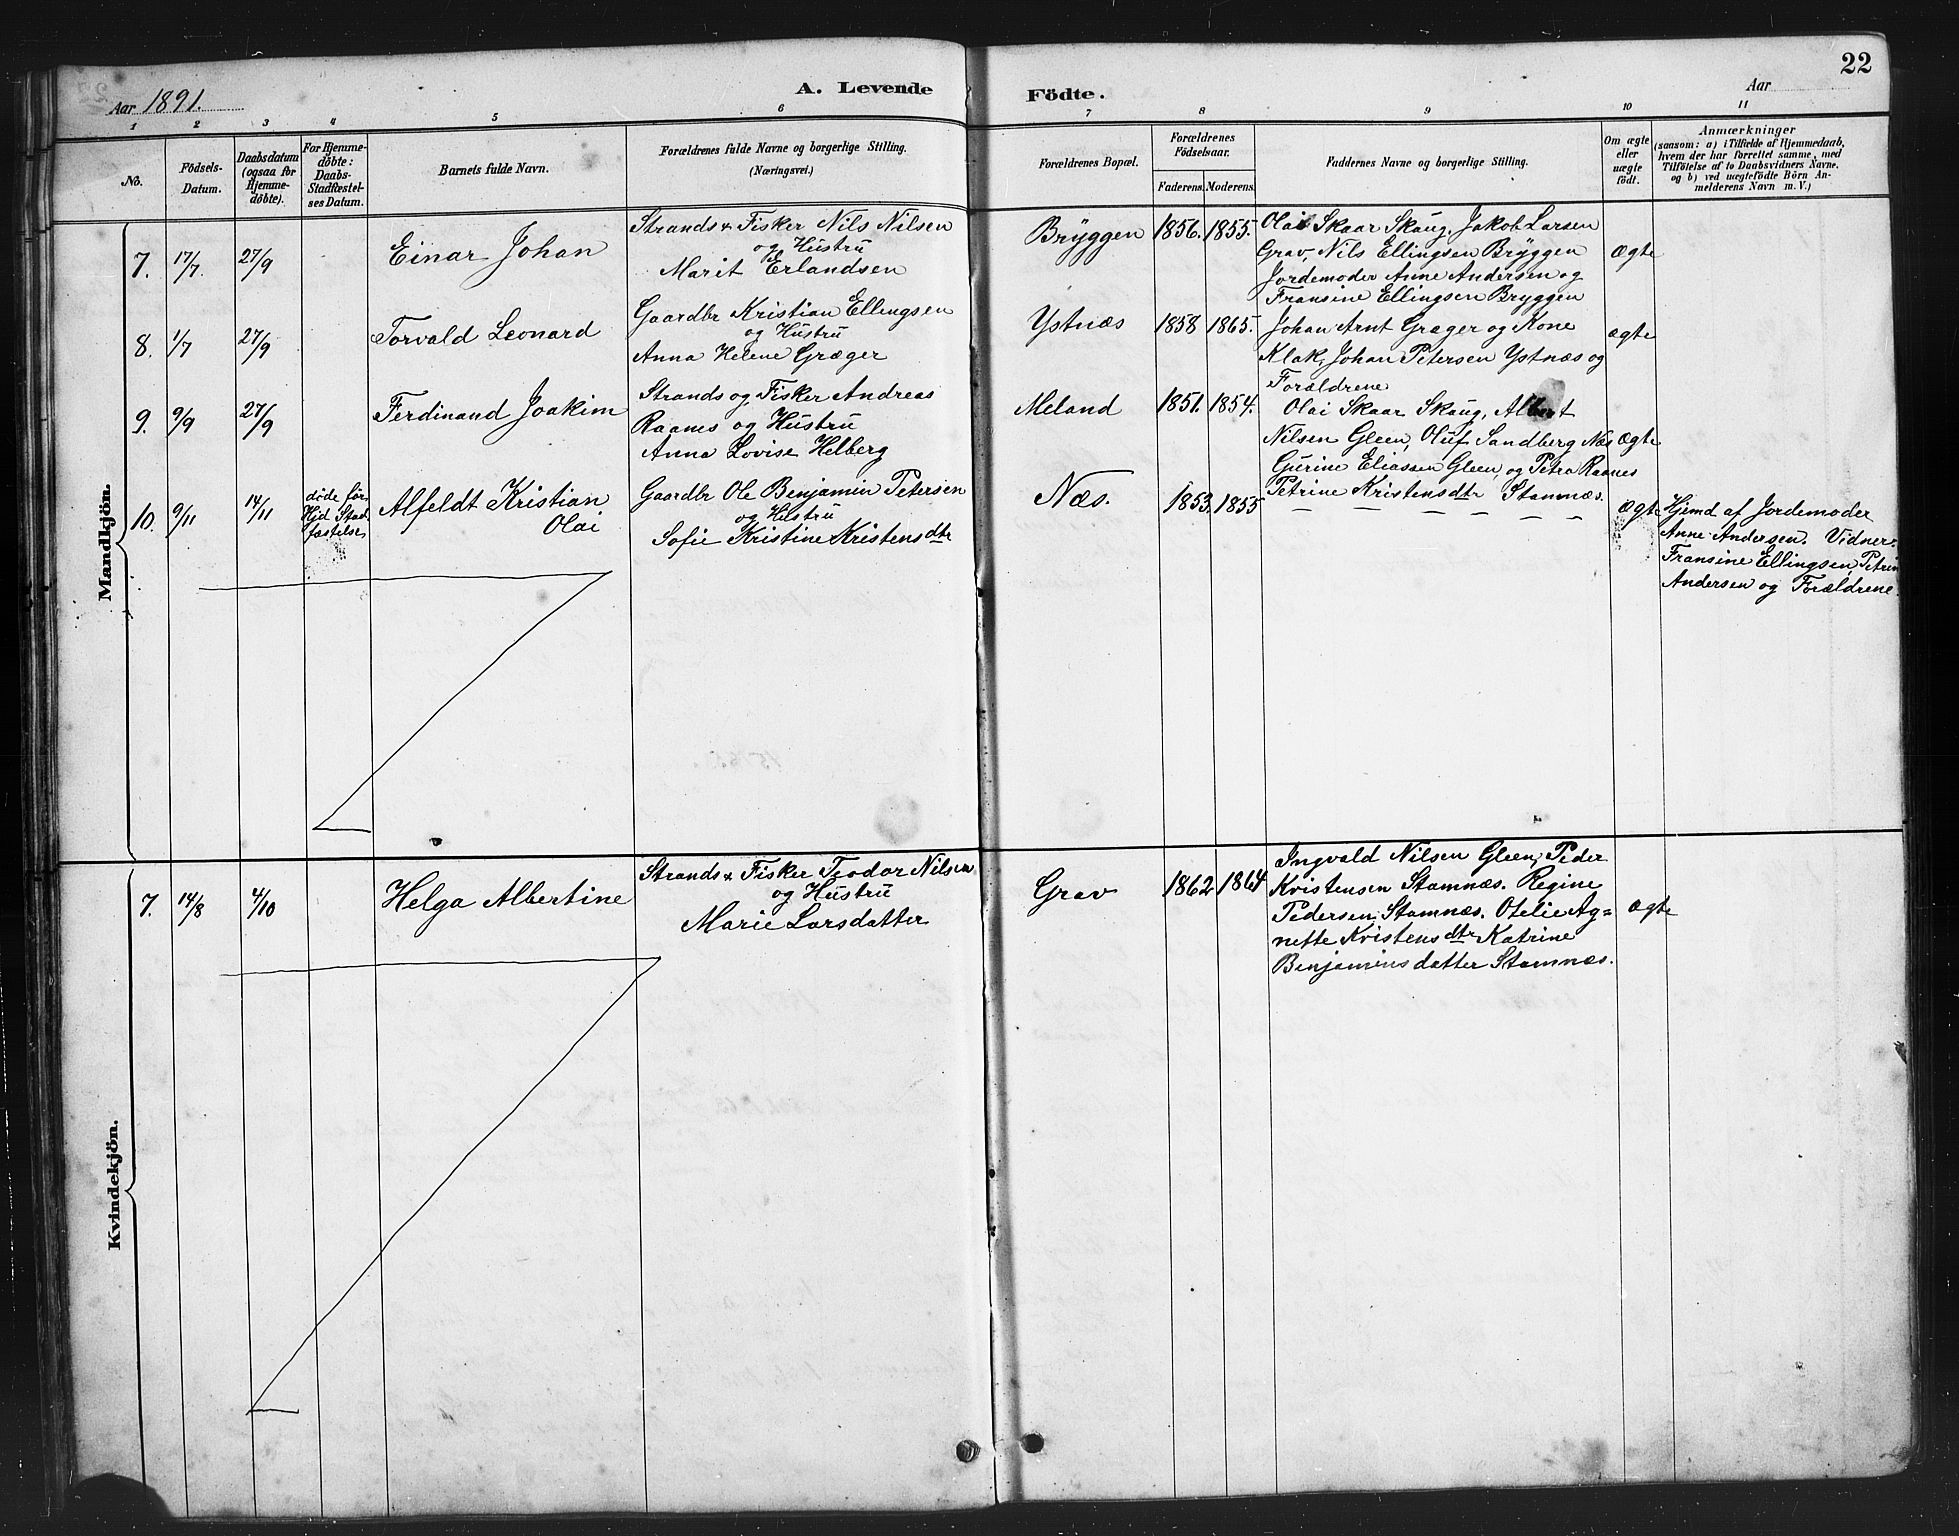 22
Aar 1891.
A. Levende
Födte.
Aar
1 2 3 4 5 6 7 8 9 10 11
No.
Födsels-
Datum.
Daabsdatum
(ogsaa for
Hjemme-
döbte).
For Hjemme-
döbte:
Daabs-
Stadfæstel-
ses Datum.
Barnets fulde Navn.
Forældrenes fulde Navne og borgerlige Stilling.
(Næringsvei.)
Forældrenes Bopæl.
Forældrenes
Födselsaar.
Faderens. Moderens.
Faddernes Navne og borgerlige Stilling.
Om ægte
eller
uægte
födt.
Anmærkninger
(saasom: a) i Tilfælde af Hjemmedaab,
hvem der har forrettet samme, med
Tilföielse af to Daabsvidners Navne.
og b) ved uægtefödte Börn An-
melderens Navn m. V.)
Mandkjön.
7. 17/7. 27/9
Einar Johan
Strands & Fisker Nils Nilsen
og Hustru
Marit Erlandsen
Bryggen 1856. 1855.
Olai Skaar Skaug, Jakob Larsen
Grav, Nils Ellingsen Bryggen
Jordemoder Anne Andersen og
Fransine Ellingsen Bryggen
Ægte
8. 1/7 27/9
Torvald Leonard
Gaardbr Kristian Ellingsen
og Hustru
Anna Helene Græger
Ystnæs 1858 1865.
Johan Arnt Græger og Kone
Klak, Johan Petersen Ystnæs og
Forældrene
ægte
9. 9/9 27/9
Ferdinand Joakim
Strands og Fisker Andreas
Raanes og Hustru
Anna Lovise Helberg
Meland 1851. 1854.
Olai Skaar Skaug, Albert
Nilsen Gleen, Oluf Sandberg Næs
Gurine Eliassen Gleen, og Petra Raanes
Petrine Kristensdtr Stamnæs.
Ægte
10. 9/11 14/11
døde før
Hjd Stad
fæstelse
Alfeldt Kristian
Olai
Gaardbr Ole Benjamin Petersen
og Hustru
Sofie Kristine Kristensdtr
Næs. 1853. 1855
— — — — — —
Ægte
Hjemd af Jordemoder
Anne Andersen. Vidner:
Fransine Ellingsen, Petrine
Andersen og Forældrene.
Kvindekjön.
7. 14/8 4/10
Helga Albertine
Strands & Fisker Teodor Nilsen
og Hustru
Marie Larsdatter
Grav 1862 1864
Ingvald Nilsen Gleen, Peder
Kristensen Stamnæs. Regine
Pedersen, Stamnæs. Otelie Ag=
nette Kristensdtr Katrine
Benjaminsdatter Stamnæs.
Ægte